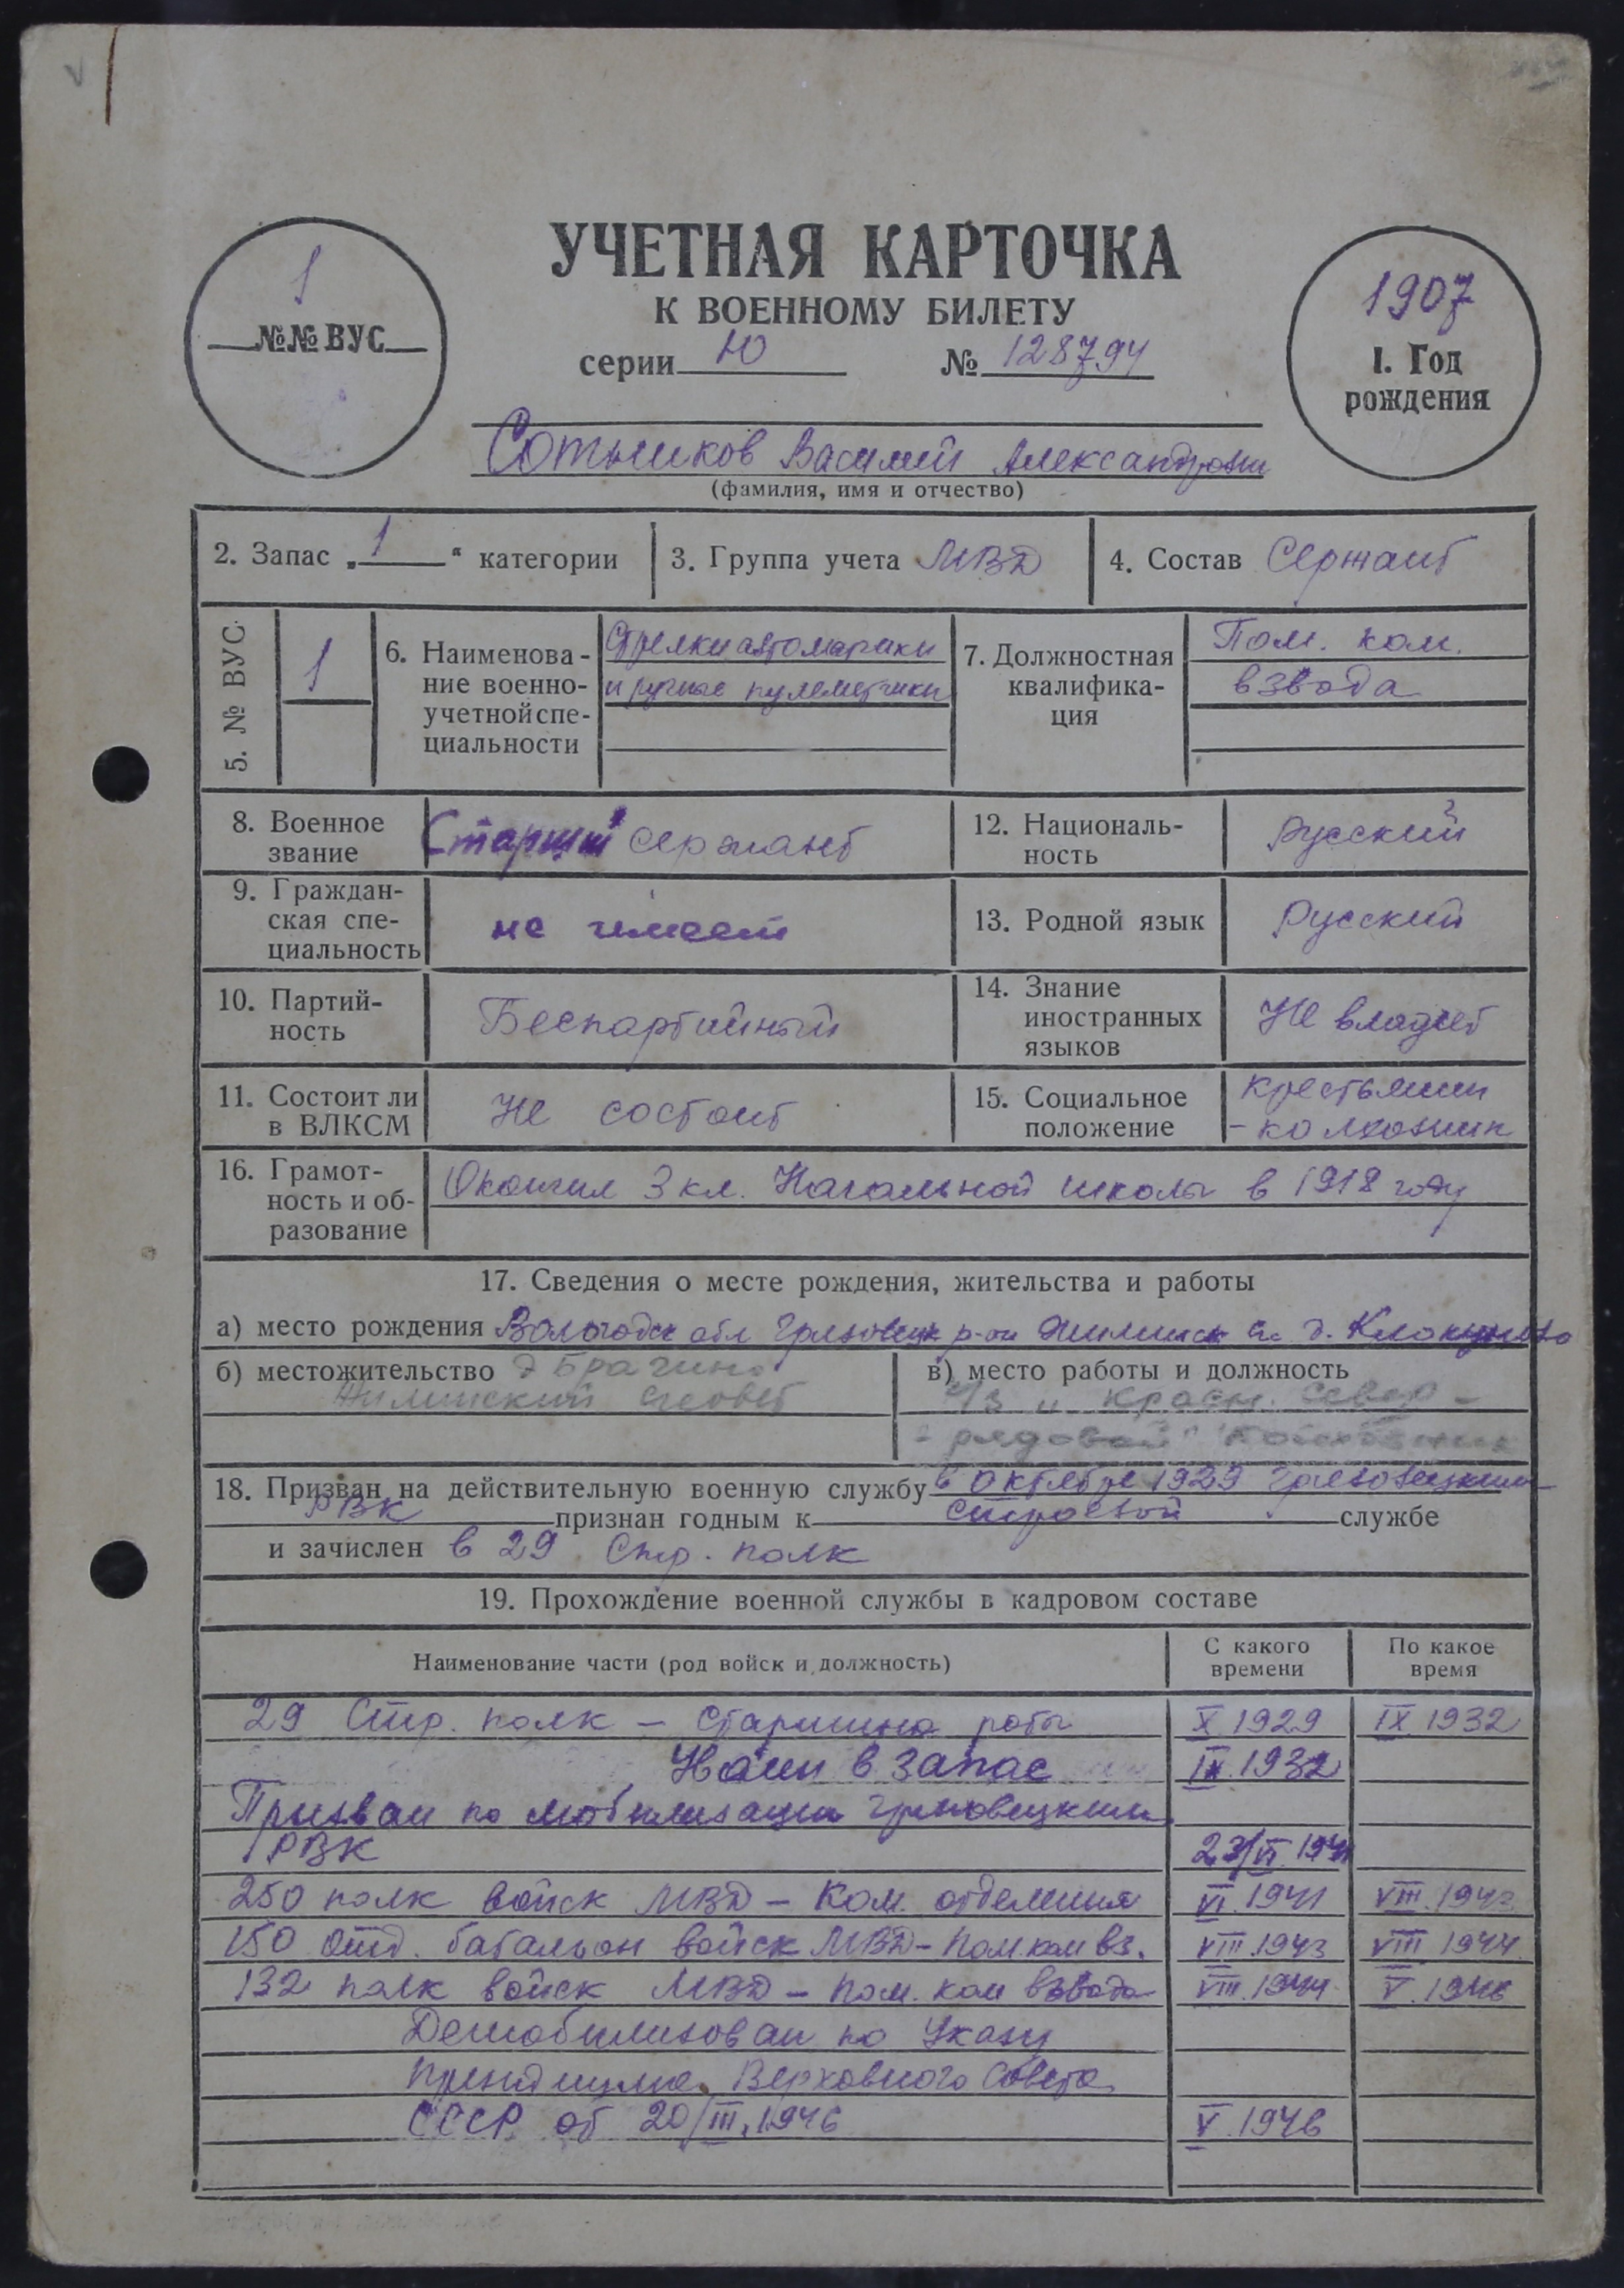 УЧЕТНАЯ КАРТОЧКА
К ВОЕННОМУ БИЛЕТУ
серии Ю № 128794
1
№№ ВУС
1907
1. Год
рождения
Сотников Василий Александрович
(фамилия, имя и отчество)
2. Запас „1“ категории
3. Группа учета МВД
4. Состав Сержант
5. № ВУС
1
6. Наименова-
ние военно-
учетной спе-
циальности
Стрелки автоматчики
и ручные пулеметчики
7. Должностная
квалифика-
ция
Пом. ком.
взвода
8. Военное
звание
Старший сержант
12. Националь-
ность
Русский
9. Граждан-
ская спе-
циальность
не имеет
13. Родной язык
Русский
10. Партий-
ность
Беспартийный
14. Знание
иностранных
языков
Не владеет
11. Состоит ли
в ВЛКСМ
Не состоит
15. Социальное
положение
крестьянин
- колхозник
16. Грамот-
ность и об-
разование
Окончил 3 кл. Начальной школы в 1918 году
17. Сведения о месте рождения, жительства и работы
а) место рождения Вологодск обл Грязовецк р-он Жилинск с д.
б) местожительство д Брагино
Жилинский с/совет
в) место работы и должность
к/з "Красн. Север" -
- рядовой колхозник
18. Призван на действительную военную службу в октябре 1929 Грязовецким
РВК признан годным к строевой службе
и зачислен в 29 Стр. полк
19. Прохождение военной службы в кадровом составе
Наименование части (род войск и должность)
С какого
времени
По какое
время
29 Стр. полк – старшина роты X 1929 IX 1932
в запас IX 1932
Призван по мобилизации Грязовецким
РВК 23/VI 1941
250 полк войск МВД – Ком. отделения VI. 1941 VIII. 1943
150 отд. батальон войск МВД – пом. ком вз. VIII. 1943 VIII 1944
132 полк войск МВД – пом. ком взвода VIII. 1944 V. 1946
Демобилизован по Указу
Президиума Верховного Совета
СССР от 20/III. 1946 V. 1946